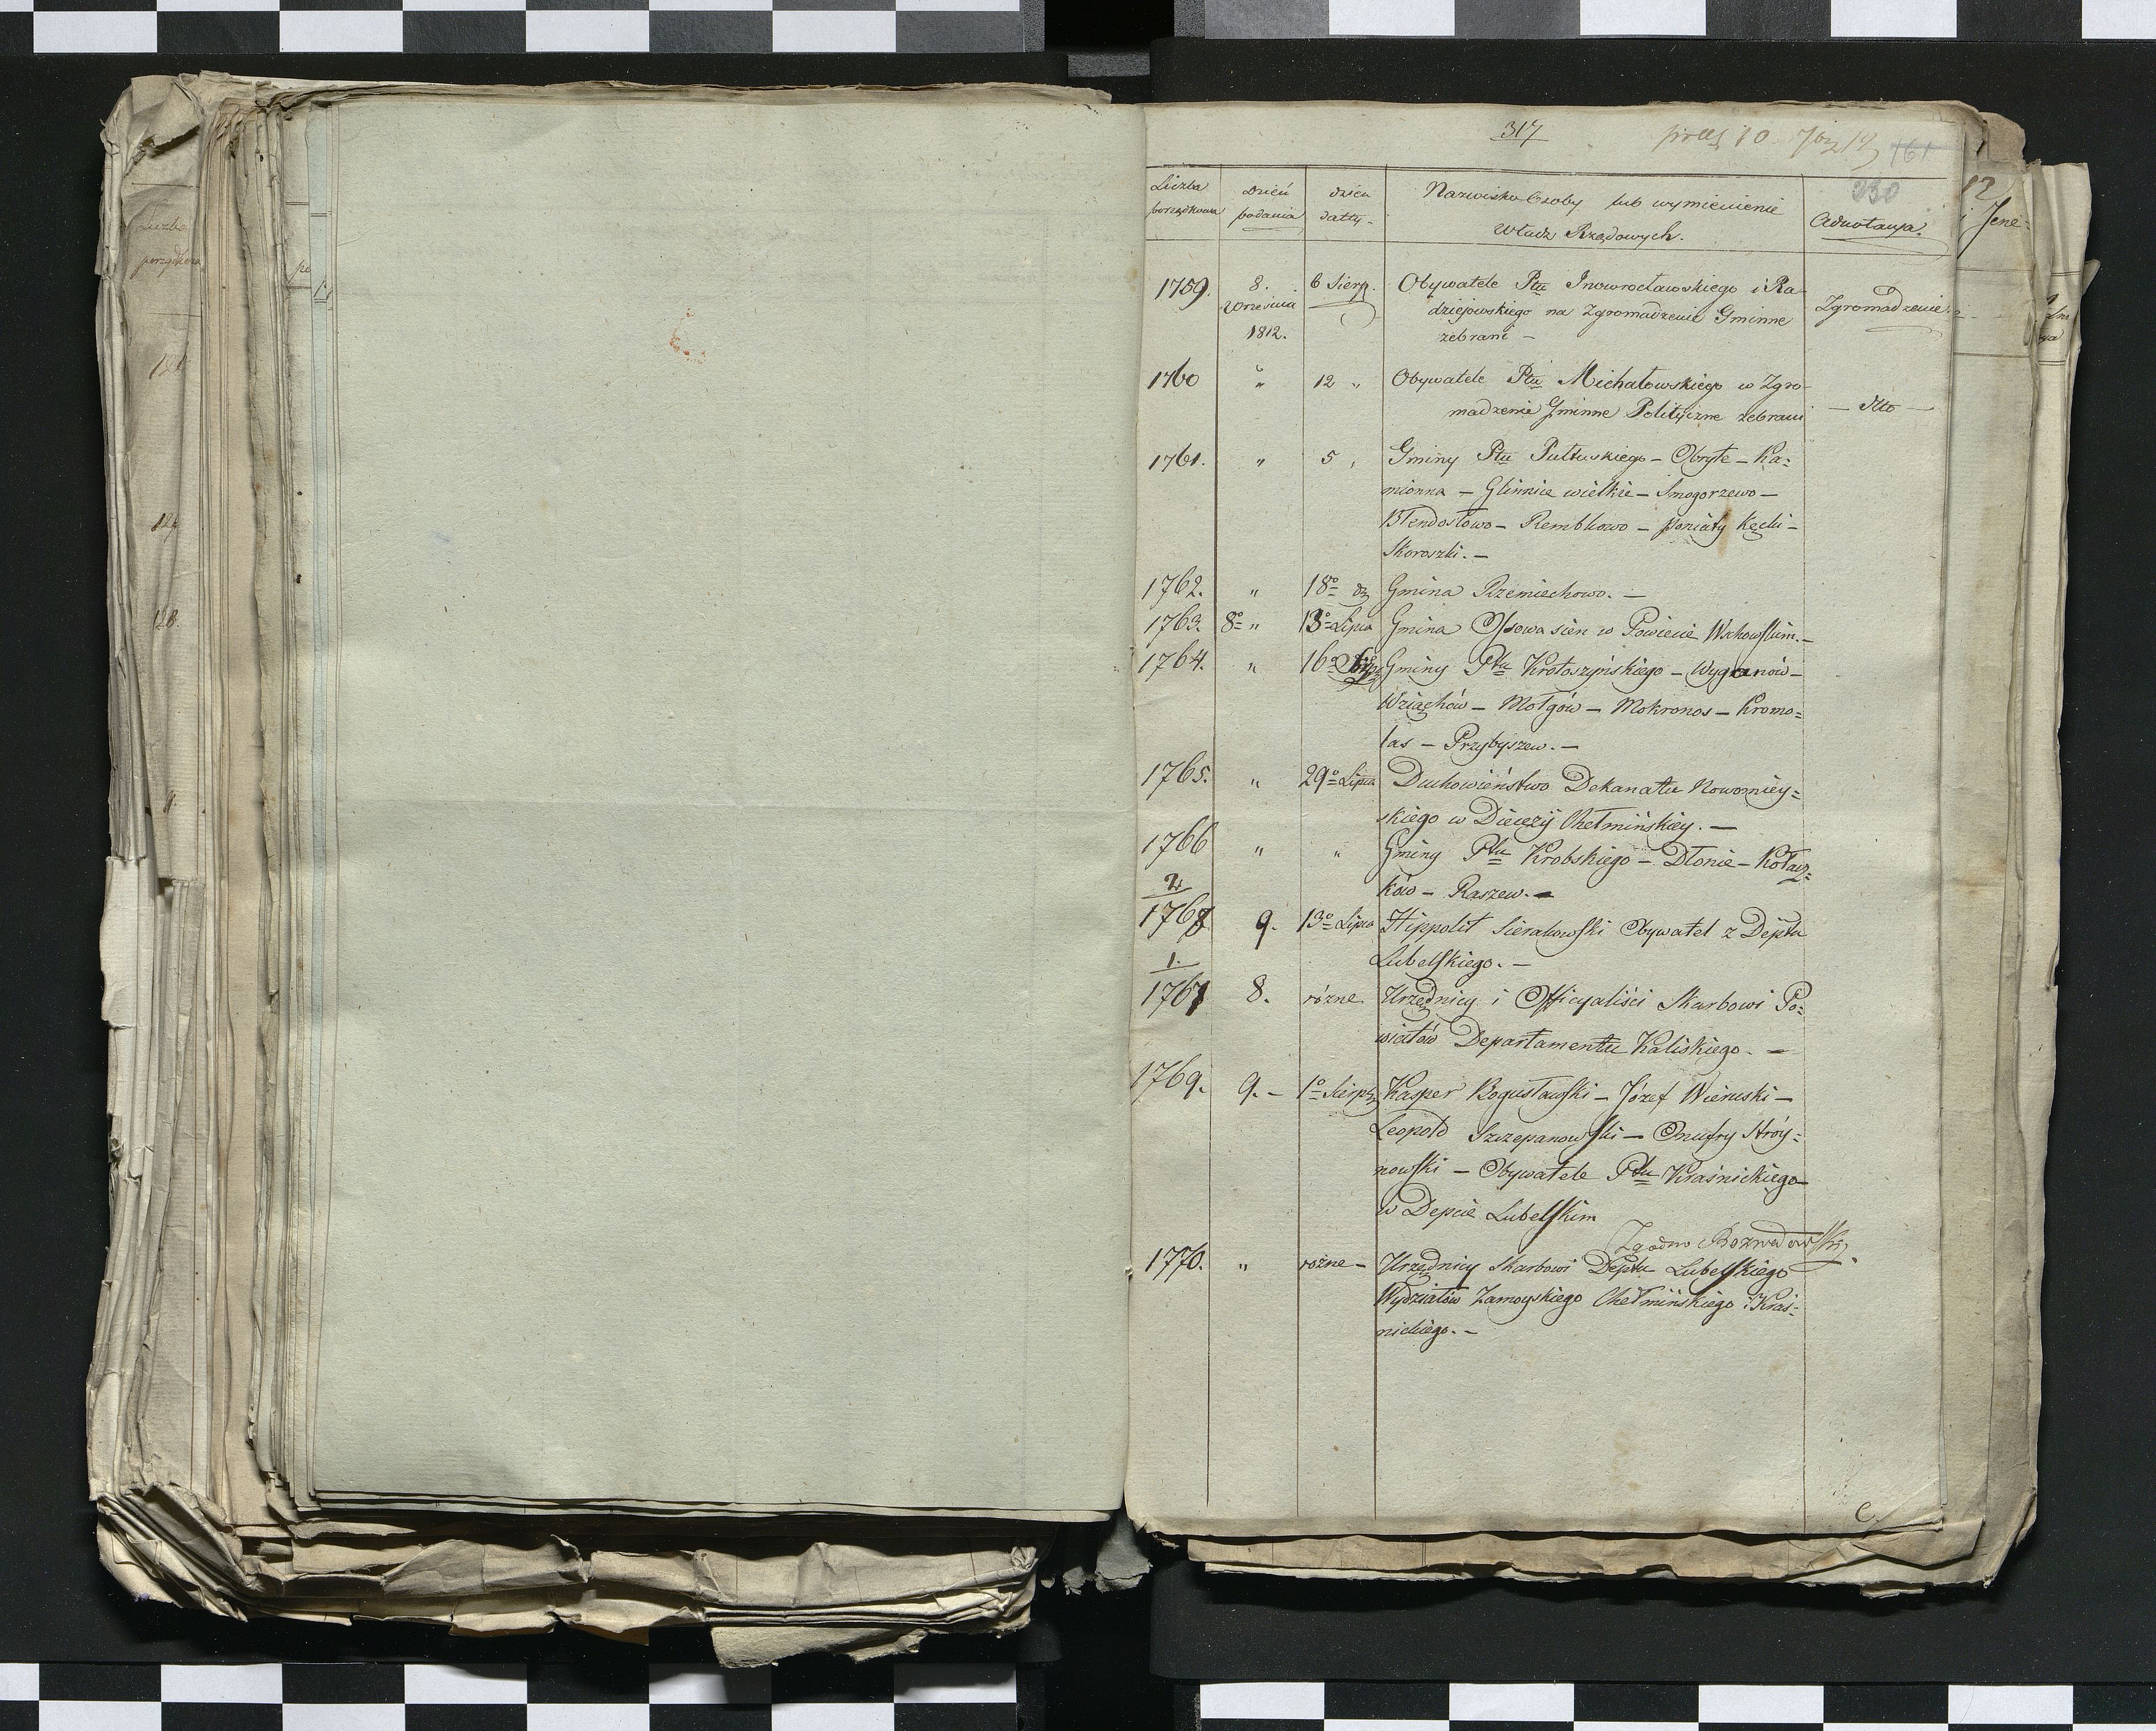 317
330
Liczba porządkowa
Dzień podania
dzień datty.
Nazwisko Osoby lub wymienienie
Władz Rządowych.
Adnotacya.
1759. 8. Września 1812. 6 Sierp. Obywatele Ptu Inowrocławskiego i Ra-
dziejowskiego na Zgromadzenie Gminne
zebrani –
Zgromadzenie
1760 " 12 " Obywatele Ptu Michałowskiego w Zgro-
madzenie Gminne Polityczne zebrani
— dtto —
1761. " 5 " Gminy Ptu Pultuskiego – Obryte – Ka=
mionna – Glinnice wielkie – Smogorzewo –
Błendostowo – Rembkowo – Poniaty Kęcki –
Skoroszki. –
1762. " 18o Gmina Rzemiechowo. –
1763. 8o " 13o Lipca Gmina Ossowa sien w Powiecie Wschowskim. –
1764. " 16o Gminy Ptu Krotoszyńskiego – Wyganów –
Wziąchów – Mołgów – Mokronos – Kromo=
las – Przybyszew. –
1765. " 29o Lipca Duchowieństwo Dekanatu Nowomiey=
skiego w Diecezÿi Chełmińskiey. –
1766 " " Gminy Ptu Krobskiego – Dłonie – Kołacz=
ków – Raszew. –
2.
1768 9. 13o Lipca Hippolit Sierakowski Obywatel z Deptu
Lubelskiego. –
1.
1767 8. różne Urzędnicy i Officyaliści Skarbowi Po=
wiatów Departamentu Kaliskiego. –
1769. 9. – 1o Sierp. Kasper Bogusławski – Józef Wieruski –
Leopold Szczepanowski – Onufry Stróy=
nowski – Obywatele Ptu Kraśnickiego
w Depcie Lubelskim
Zgodno Bozwadowski.
1770. " rożne – Urzędnicy Skarbowi Deptu Lubelskiego
Wydziałów Zamoyskiego Chełmińskiego i Kraś-
nickiego. –
C.